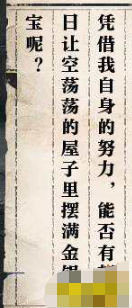 凭借我自身的努力，能否有
日让空荡荡的屋子里摆满金
宝呢？